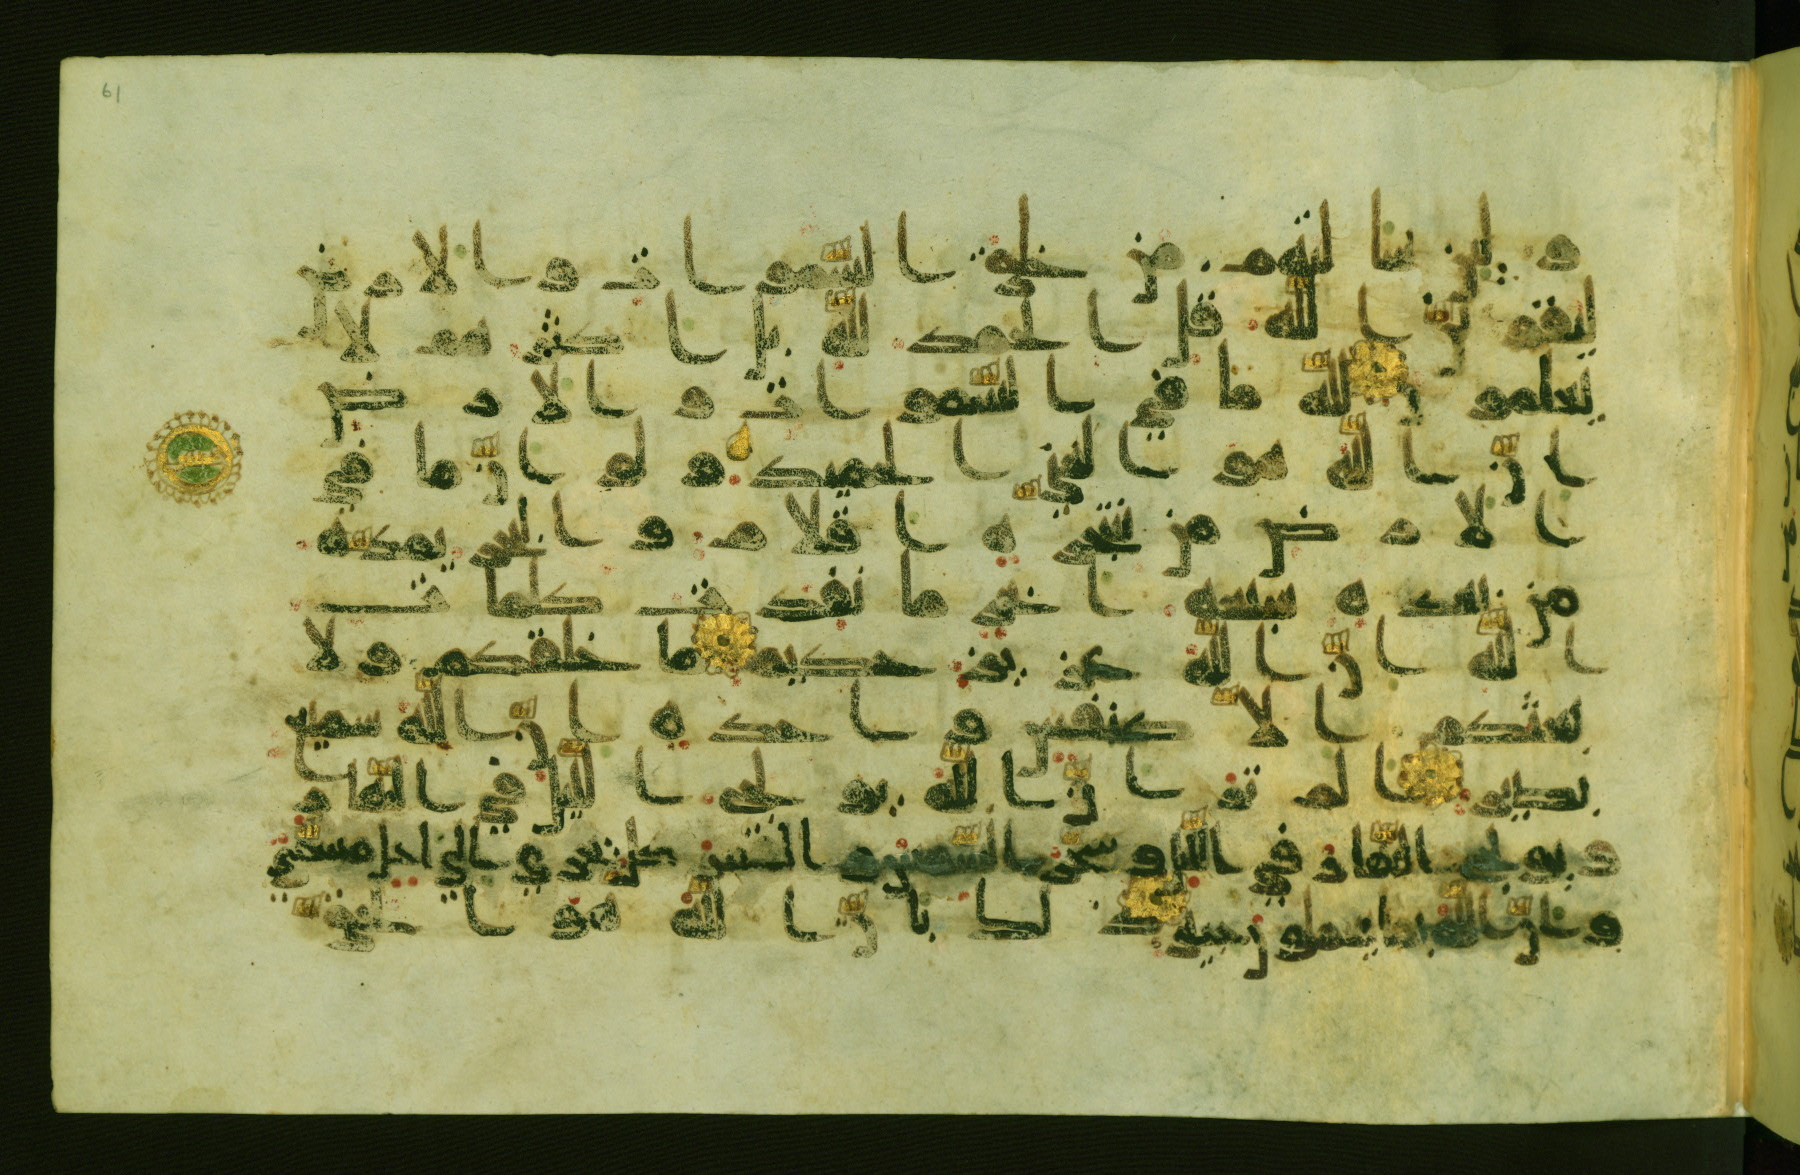 61
ولئن سالتهم من خلق السموات والارض
ليقولن الله قل الحمد لله بل اكثرهم لا
يعلمون لله ما في السموات والارض
ان الله هو الغني الحميد ولو ان ما في
الارض من شجرة اقلام والبحر يمده
من بعده سبعة ابحر ما نفدت كلمات
الله ان الله عزيز حكيم ما خلقكم ولا
بعثكم الا كنفس واحدة ان الله سميع
بصير الم تر ان الله يولج الليل في النهار
ويولج النهار في الليل وسخر الشمس والقمر كل يجري الي اجل مسمي
وان الله بما تعملون خبير ذلك بان الله هو الحق